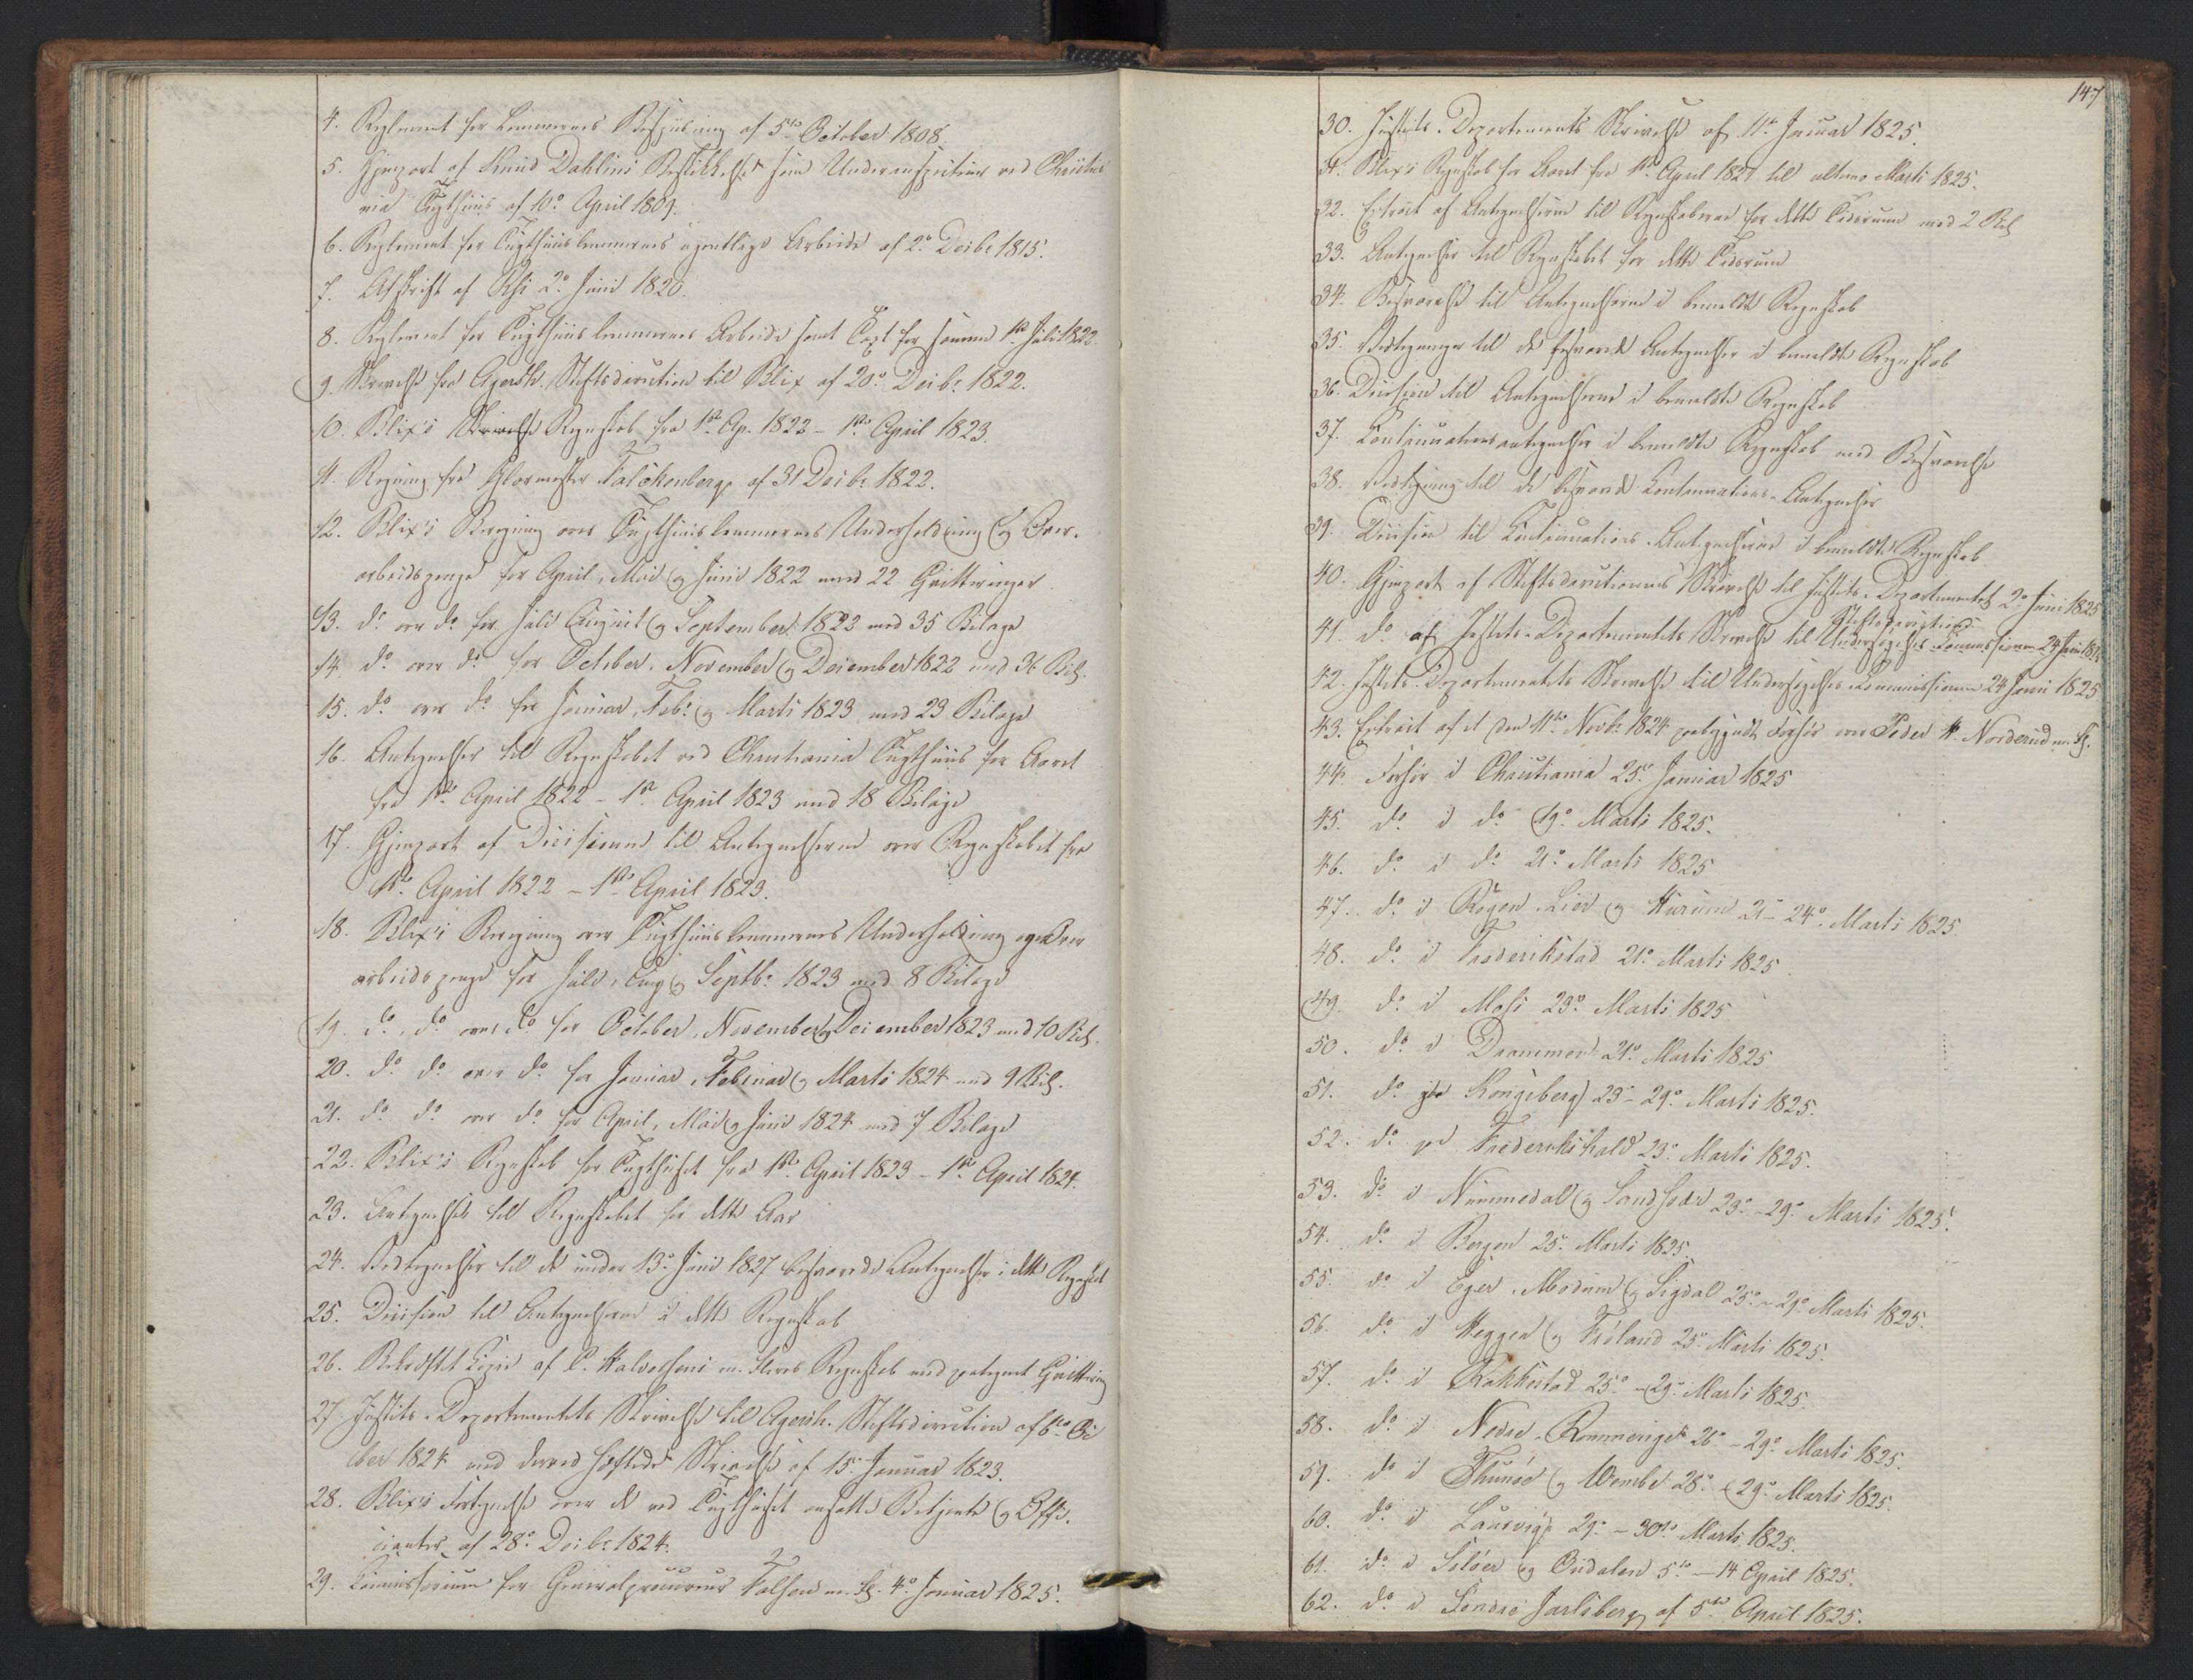 4. Reglement for Lemmernes Bespiisning af 5te October 1808.
5. Gjenpart af Knud Dahlins Bestikkelse som Underinspecteur ved Christia
nia Tugthuus af 10de April 1809.
6. Reglement for Tugthuuslemmernes ugentlige Arbeide af 2de Decbr 1815.
7. Afskrift af 2de Juni 1820.
8. Reglement for Tugthuuslemmernes Arbeide samt Taxt for samme 1ste Juli 1822.
9. Skrivelse fra Agersh. Stiftsdirection til Blix af 20de Decbr 1822.
10. Blix's Skrivelse Regnskab fra 1ste Ap. 1822 - 1ste April 1823.
11. Regning fra Glarmester Falckenberg af 31 Decbr 1822.
12. Blix's Beregning over Tugthuuslemmernes Underholdning og Over-
arbeidspenge for April, Mai og Juni 1822 med 22 Qvitteringer
13. do over do for Juli August og September 1822 med 35 Bilage
14. do over do for October, November og December 1822 med Bil.
15. do over do for Januar, Feb. og Marts 1823 med 23 Bilage
16. Antegnelser til Regnskabet ved Christiania Tugthuus for Aaret
fra 1ste April 1822 - 1ste April 1823 med 18 Bilage
17. Gjenpart af Decisionen til Antegnelserne over Regnskabet fra
1ste April 1822 - 1ste April 1823.
18. Blix's Beregning over Tugthuuslemmernes Underholdning og Over
arbeidspenge for Juli, Aug og Septbr 1823 med 8 Bilage
19. do do over do for October, November og December 1823 med 10 Bil.
20. do do over do for Januar, Februar og Marts 1824 med 9 Bil.
21. do do over do for April, Mai og Juni 1824 med 7 Bilage
22. Blix's Regnskab for Tugthuset fra 1ste April 1823 - 1ste April 1824.
23. Antegnelser til Regnskabet for dette Aar
24. Vedtegnelser til de under 13de Juni 1827 besvarede Antegnelser i dette Regnskab
25. Decision til Antegnelserne i dette Regnskab
26. Bekræftet Copie af P. Halvorsens m. fleres Regnskab med paategnet Qvittering
27. Justits-Departementets Skrivelse til Agersh. Stiftsdirection af 6te Oc
tber 1824 med derved hæftede Skrivelse af 15de Januar 1823.
28. Blix's Fortegnelse over de ved Tugthuset ansatte Betjente og Offi-
cianter af 28de Decbr 1824.
29. Commissorium for Generalprocureur Falsen m. fl. 4de Januar 1825.
147
30. Justits-Departements Skrivelse af 11te Januar 1825.
31. Blix's Regnskab for Aaret fra 1ste April 1824 til ultimo Marts 1825.
32. Extract af Antegnelserne til Regnskaberne for dette Tidsrum med 2 Bil
33. Antegnelser til Regnskabet for dette Tidsrum
34. Besvarelse til Antegnelserne i bemeldte Regnskab
35. Vedtegninger til de besvarede Antegnelser i bemeldte Regnskab
36. Decision til Antegnelserne i bemeldte Regnskab
37. Continuationsantegnelser i bemeldte Regnskab med Besvarelse
38. Vedtegning til de besvarede Continuations-Antegnelser
39. Decision til Continuations-Antegnelserne i bemeldte Regnskab
40. Gjenpart af Stiftsdirectionens Skrivelse til Justits-Departementet 2de Juni 1825
Stiftsdirectionen
41. do af Justits-Departementets Skrivelse til Undersøgelses-Commissionen 24 Juni 1825
42. Justits-Departementets Skrivelse til Undersøgelses-Commissionen 24 Juni 1825
43. Extract af et den 11te Novbr 1824 paabegyndt Forhør over Peder H. Norderud m. fl.
44. Forhør i Christiania 25de Januar 1825
45. do i do 19de Marts 1825.
46. do i do 21de Marts 1825
47. do i Røgen, Lier og Hurum 21 - 24de Marts 1825
48. do i Frederikstad 21de Marts 1825
49. do i Moss 23de Marts 1825
50. do i Drammen 21de Marts 1825
51. do paa Kongsberg 23 - 29de Marts 1825.
52. do paa Frederikshald 23de Marts 1825.
53. do i Nummedal og Sandsvær 23de - 29de Marts 1825.
54. do i Bergen 25de Marts 1825.
55. do i Eger, Modum og Sigdal 25de - 29de Marts 1825.
56. do i Heggen og Frøland 25de Marts 1825.
57. do i Rakkestad 25de - 29de Marts 1825.
58. do i Nedre Rommerige 26de - 29de Marts 1825.
59. do i Thunøe og Wembe 28de - 29de Marts 1825.
60. do i Laurvig 29de - 30te Marts 1825.
61. do i Soløer og Oudalen 5te - 14 April 1825.
62. do i Søndre Jarlsberg af 5te April 1825.